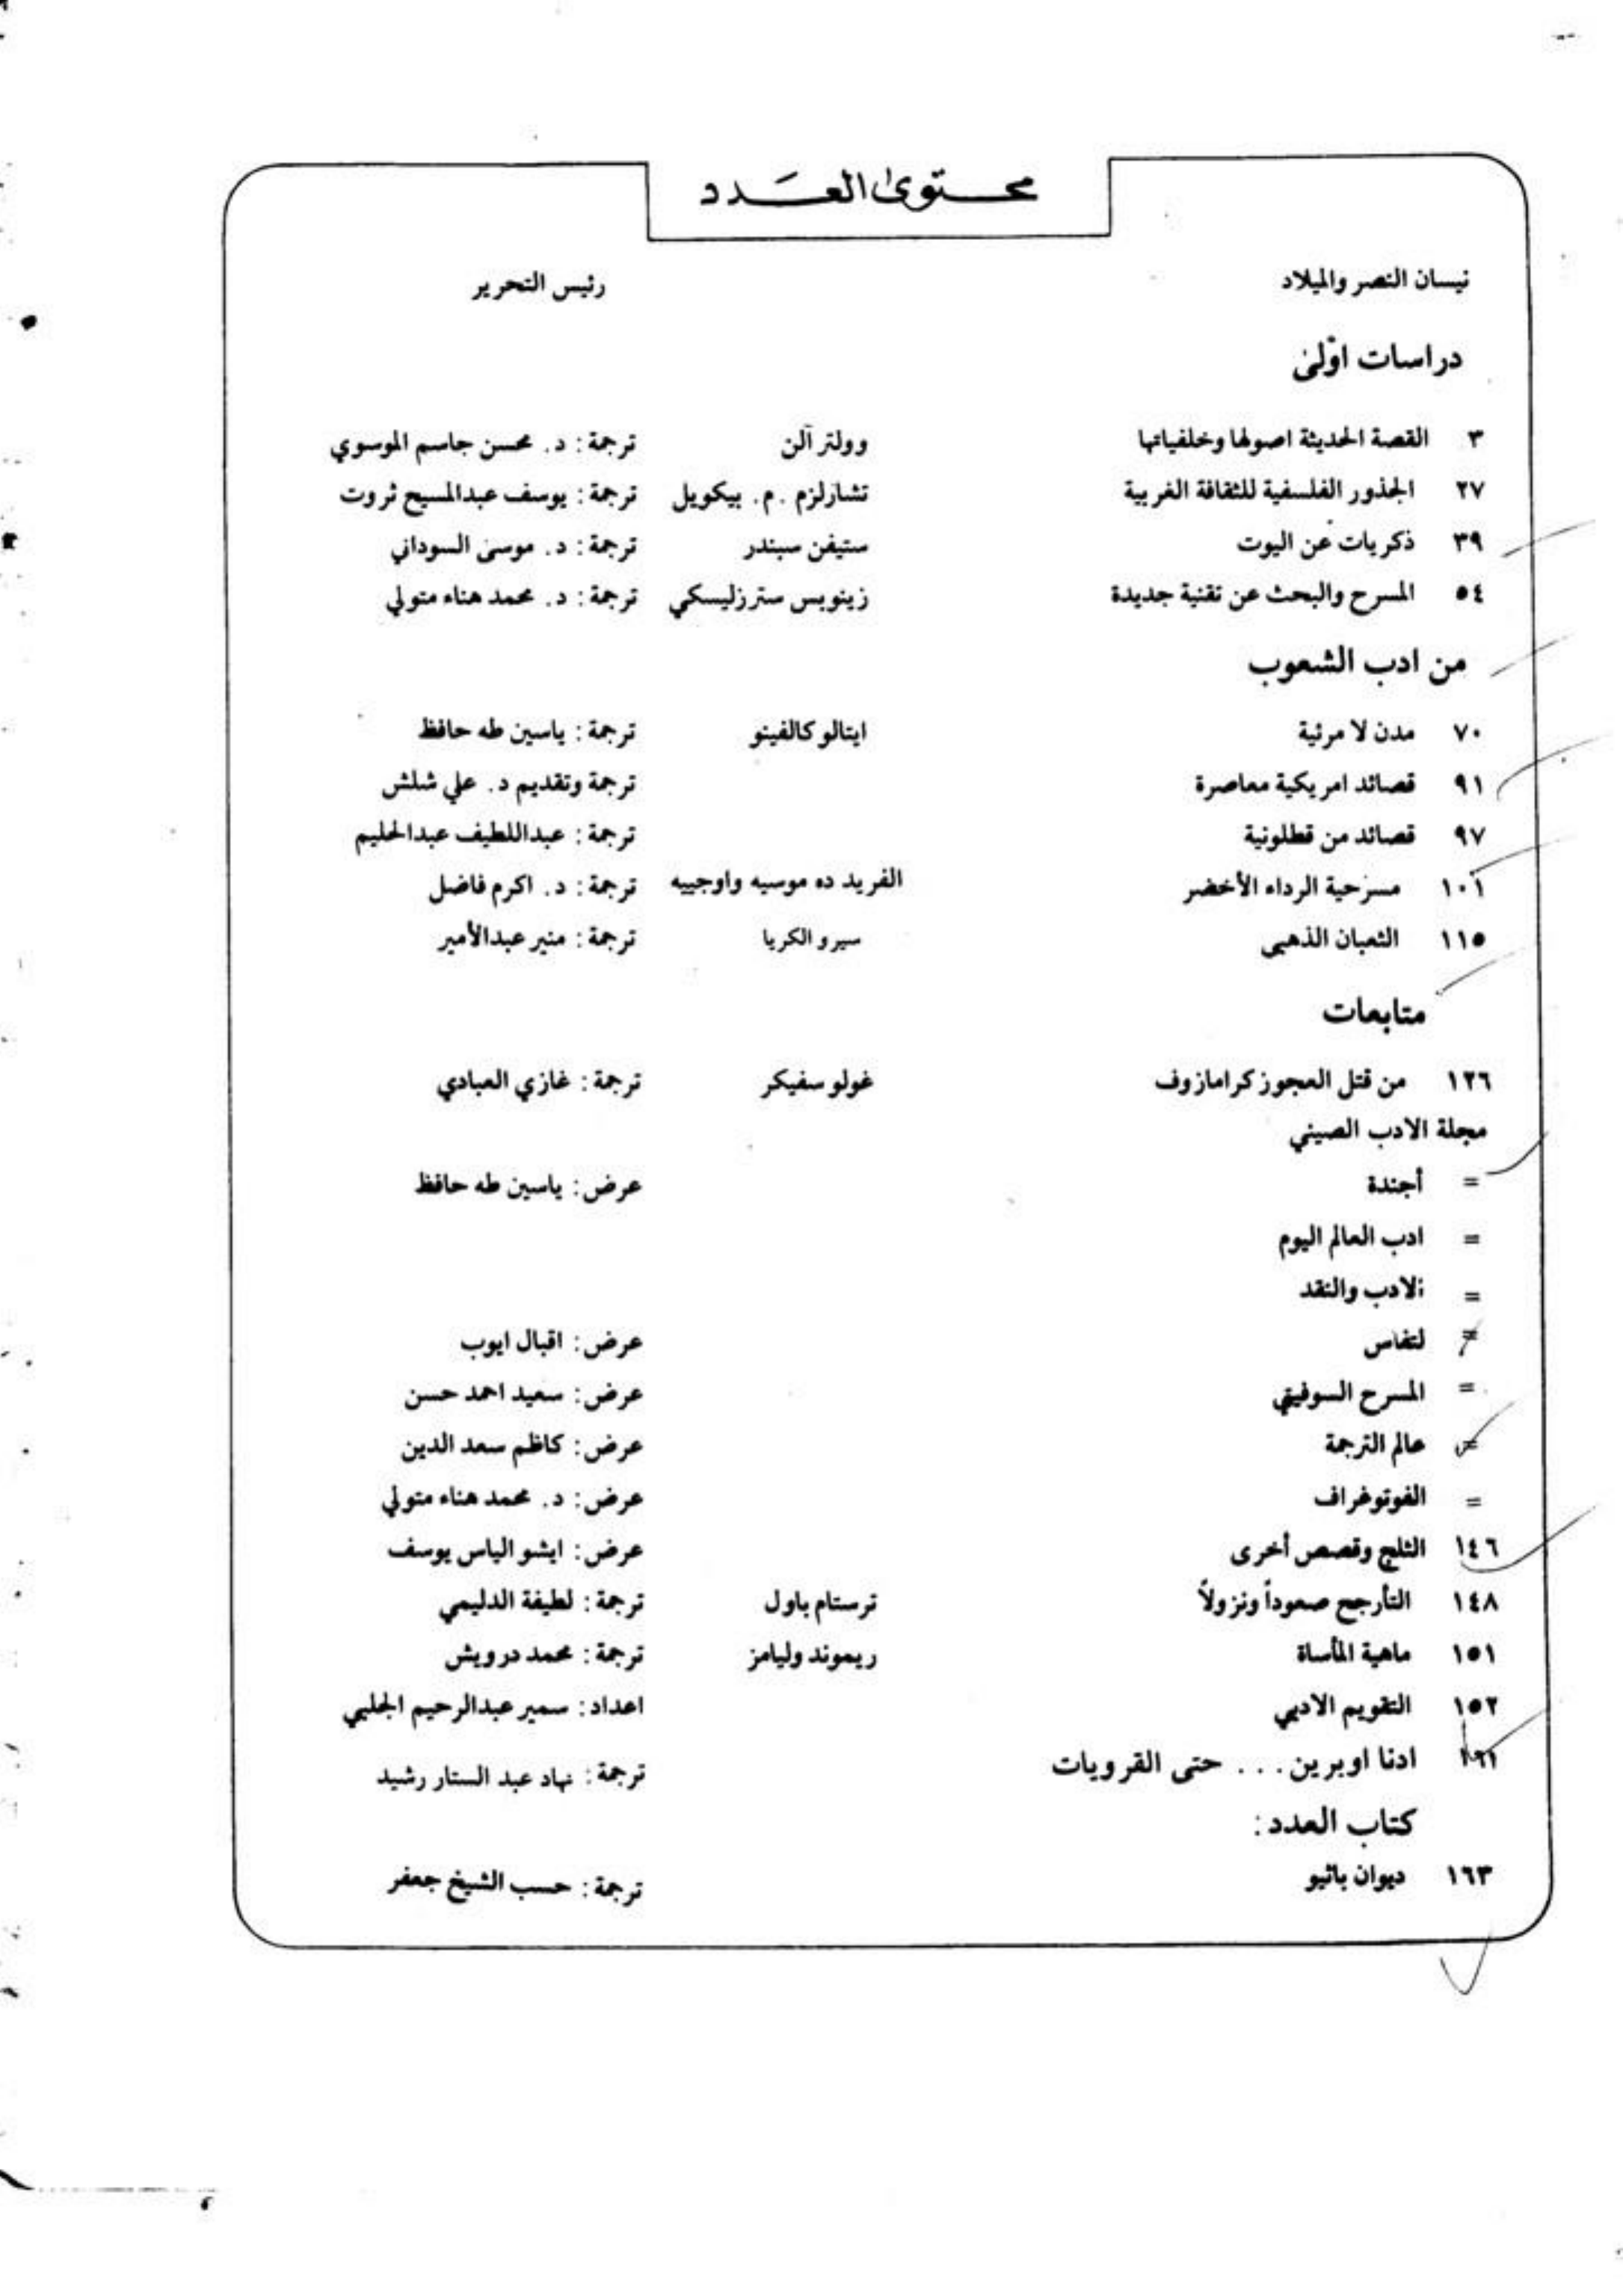 محتوى العدد
نيسان النصر والميلاد رئيس التحرير
دراسات اولى
٣ القصة الحديثة اصولها وخلفياتها وولتر آلن ترجمة: د. محسن جاسم الموسوي
٢٧ الجذور الفلسفية للثقافة الغربية تشارلزم .م. بيكويل ترجمة: يوسف عبدالمسيح ثروت
٣٩ ذكريات عن اليوت ستيفن سبندر ترجمة: د. موسى السوداني
٥٤ المسرح والبحث عن تقنية جديدة زينوبس سترزليسكي ترجمة: د. محمد هناء متولي
من ادب الشعوب
٧٠ مدن لا مرئية ايتالو كالفينو ترجمة: ياسين طه حافظ
٩١ قصائد امريكية معاصرة ترجمة وتقديم د. علي شلش
٩٧ قصائد من قطلونية ترجمة: عبداللطيف عبدالحليم
١٠١ مسرحية الرداء الأخضر الفريد ده موسيه واوجييه ترجمة: د. اكرم فاضل
١١٥ الثعبان الذهبي سيرو الكريا ترجمة: منير عبدالأمير
متابعات
١٢٦ من قتل العجوز كرامازوف غولوسفيكر ترجمة: غازي العبادي
مجلة الادب الصيني
= أجندة عرض: ياسين طه حافظ
= ادب العالم اليوم
= الادب والنقد
= لتفاس عرض: اقبال ايوب
= المسرح السوفيتي عرض: سعيد احمد حسن
= عالم الترجمة عرض: كاظم سعد الدين
= الفوتوغراف عرض: د. محمد هناء متولي
١٤٦ الثلج وقصص أخرى عرض: ايشو الياس يوسف
١٤٨ التأرجح صعوداً ونزولاً ترستام باول ترجمة: لطيفة الدليمي
١٥١ ماهية المأساة ريموند وليامز ترجمة: محمد درويش
١٥٢ التقويم الادبي اعداد: سمير عبدالرحيم الجلبي
١٦١ ادنا اوبرين... حتى القرويات ترجمة: نهاد عبد الستار رشيد
كتاب العدد:
١٦٣ ديوان باثيو ترجمة: حسب الشيخ جعفر